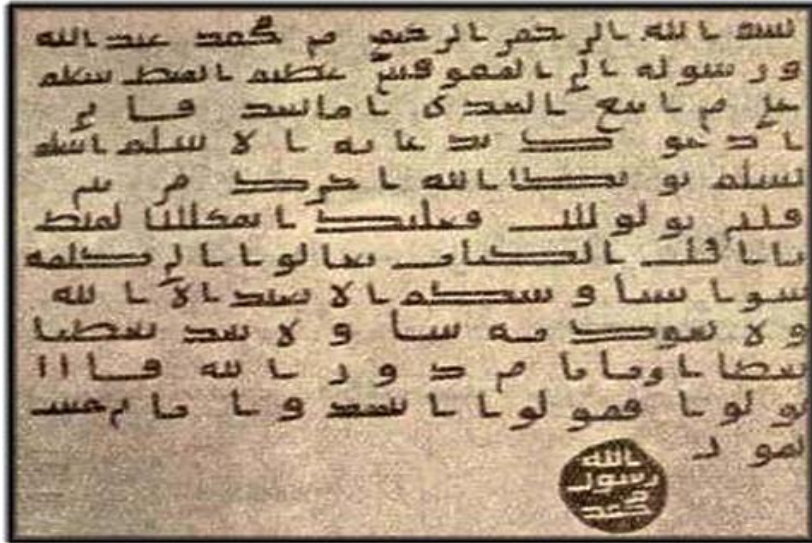 بسم الله الرحمن الرحيم من محمد عبد الله
ورسوله الى المقوقس عظيم القبط سلم
على من اتبع الهدى اما بعد فانى
ادعوك بدعايه الاسلم اسلم
تسلم يوتك الله اجرك مرتين
فان توليت فعليك القبط
يا اهل الكتاب تعالوا الى كلمه
سوا بيننا وبينكم الا نعبد الا الله
ولا نشرك به شيا ولا يتخذ بعضنا
بعضا اربابا من دون الله فان
تولوا فقولوا اشهدوا بانا مس
لمون
الله
رسول
محمد